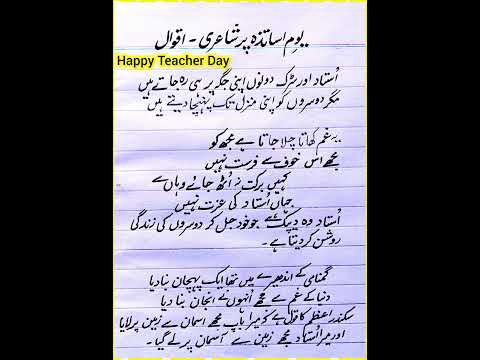 یومِ اساتذہ پر شاعری - اقوال
Happy Teacher Day
اُستاد اور سڑک دونوں اپنی جگہ پر ہی رہ جاتے ہیں
مگر دوسروں کو اپنی منزل تک پہنچا دیتے ہیں
یہ غم کھاتا چلا جاتا ہے مجھ کو
مجھے اس خوف سے فرصت نہیں
کہیں برکت نہ اُٹھ جائے وہاں سے
جہاں اُستاد کی عزت نہیں
اُستاد وہ دیپک ہے جو خود جل کر دوسروں کی زندگی
روشن کر دیتا ہے ۔
گمنامی کے اندھیرے میں تھا ایک پہچان بنا دیا
دنیا کے غم سے مجھے انہوں نے انجان بنا دیا
سکندر اعظم کا قول ہے کہ میرا باپ مجھے آسمان سے زمین پر لایا
اور میرا اُستاد مجھے زمین سے آسمان پر لے گیا ۔